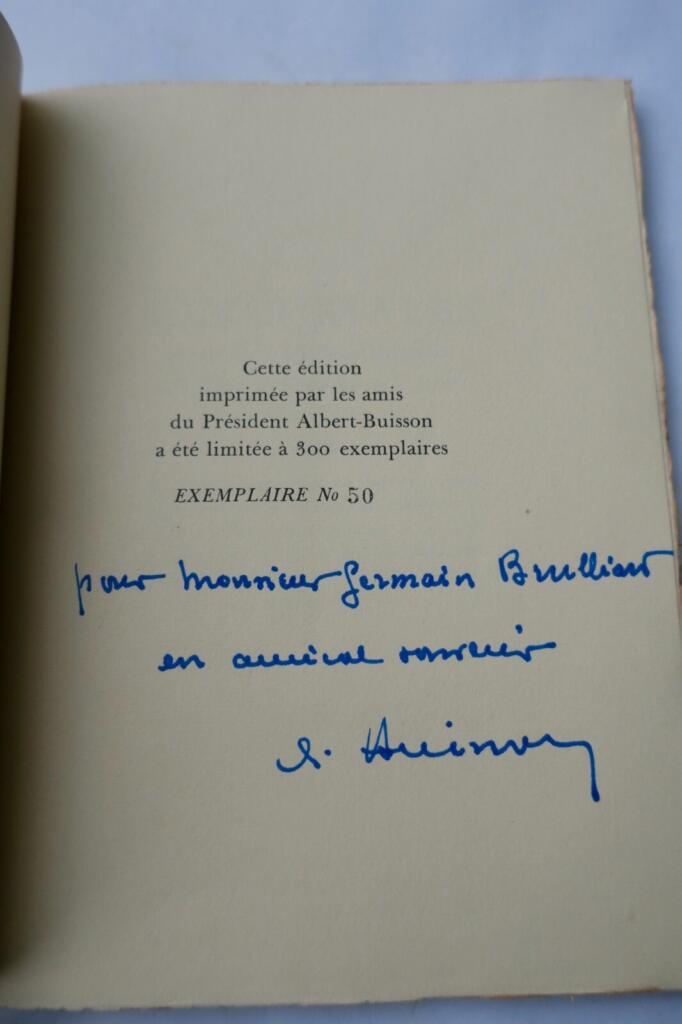 Cette édition
imprimée par les amis
du Président Albert-Buisson
a été limitée à 300 exemplaires
EXEMPLAIRE No 50
pour Monsieur Germain
en amical souvenir